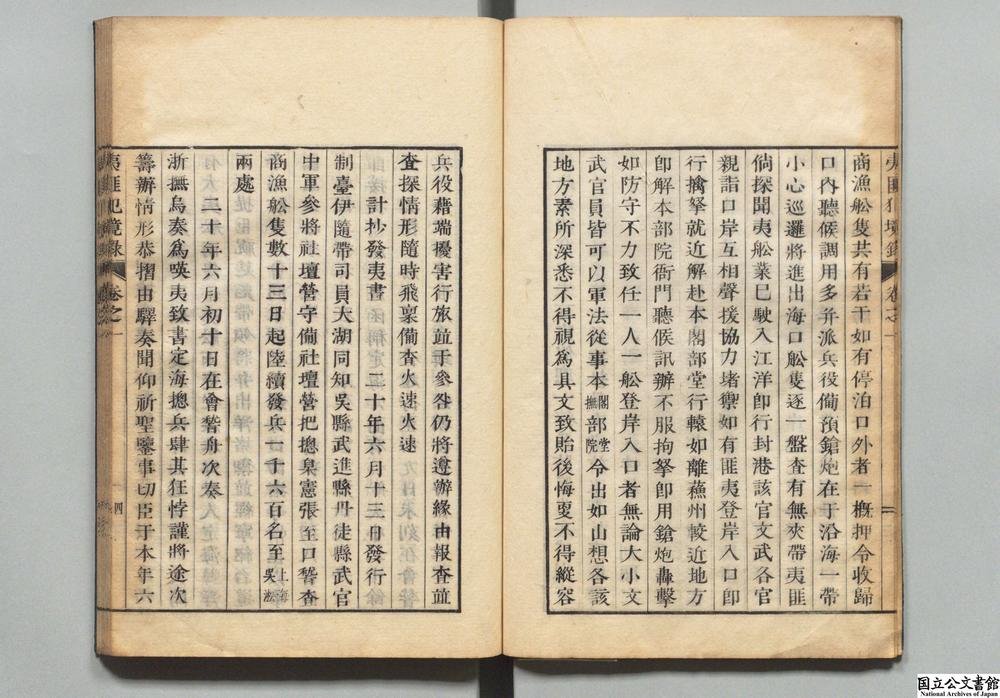 夷匪犯境錄 卷之一
商漁舩隻共有若干如有停泊口外者一概押令收歸
口內聽候調用多弁派兵役備預鎗炮在于沿海一帶
小心巡邏將進出海口舩隻逐一盤查有無夾帶夷匪
倘探聞夷舩業已駛入江洋卽行封港該官文武各官
親詣口岸互相聲援協力堵禦如有匪夷登岸入口卽
行擒拏就近解赴本閣部堂行轅如離蘓州較近地方
卽解本部院衙門聽候訊辦不服拘拏卽用鎗炮轟擊
如防守不力致任一人一舩登岸入口者無論大小文
武官員皆可以軍法從事本閣撫部堂院令出如山想各該
地方素所深悉不得視為具文致貽後悔更不得縱容
兵役藉端擾害行旅並于參咎仍將遵辦緣由報查並
查探情形隨時飛稟備查火速火速
計抄發夷書 二十年六月十三日發行
制臺伊隨帶司員大湖同知吳縣武進縣丹徒縣武官
中軍參將社壇營守備社壇營把摠臬憲張至口稽查
商漁舩隻數十三日起陸續發兵一千六百名至上海吳淞
兩處
二十年六月初十日在會稽舟次奏
浙撫烏奏為嘆夷致書定海摠兵肆其狂悖謹將途次
籌辦情形恭摺由驛奏聞仰祈聖鑒事切臣于本年六
夷匪犯境錄 卷之一 四
国立公文書館
National Archives of Japan